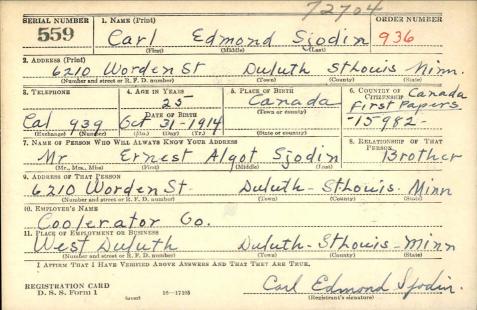 72704
SERIAL NUMBER 1. NAME (Print) ORDER NUMBER
559 Carl Edmond Sjodin 936
(First) (Middle) (Last)
2. ADDRESS (Print)
6210 Worden St Duluth St Louis Minn.
(Number and street or R. F. D. number) (Town) (County) (State)
3. TELEPHONE 4. AGE IN YEARS 5. PLACE OF BIRTH 6. COUNTRY OF CITIZENSHIP
25 Canada Canada
DATE OF BIRTH (Town or county) First Papers
Cal 939 Oct 31-1914 -15982-
(Exchange) (Number) (Mo.) (Day) (Yr.) (State or country)
7. NAME OF PERSON WHO WILL ALWAYS KNOW YOUR ADDRESS 8. RELATIONSHIP OF THAT PERSON
Mr Ernest Algot Sjodin Brother
(Mr., Mrs., Miss) (First) (Middle) (Last)
9. ADDRESS OF THAT PERSON
6210 Worden St. Duluth - St Louis. Minn
(Number and street or R. F. D. number) (Town) (County) (State)
10. EMPLOYER'S NAME
Coolerator Co.
11. PLACE OF EMPLOYMENT OR BUSINESS
West Duluth Duluth - St Louis - Minn
(Number and street or R. F. D. number) (Town) (County) (State)
I AFFIRM THAT I HAVE VERIFIED ABOVE ANSWERS AND THAT THEY ARE TRUE.
REGISTRATION CARD
D. S. S. Form 1 16-17105 Carl Edmond Sjodin.
(Registrant's signature)